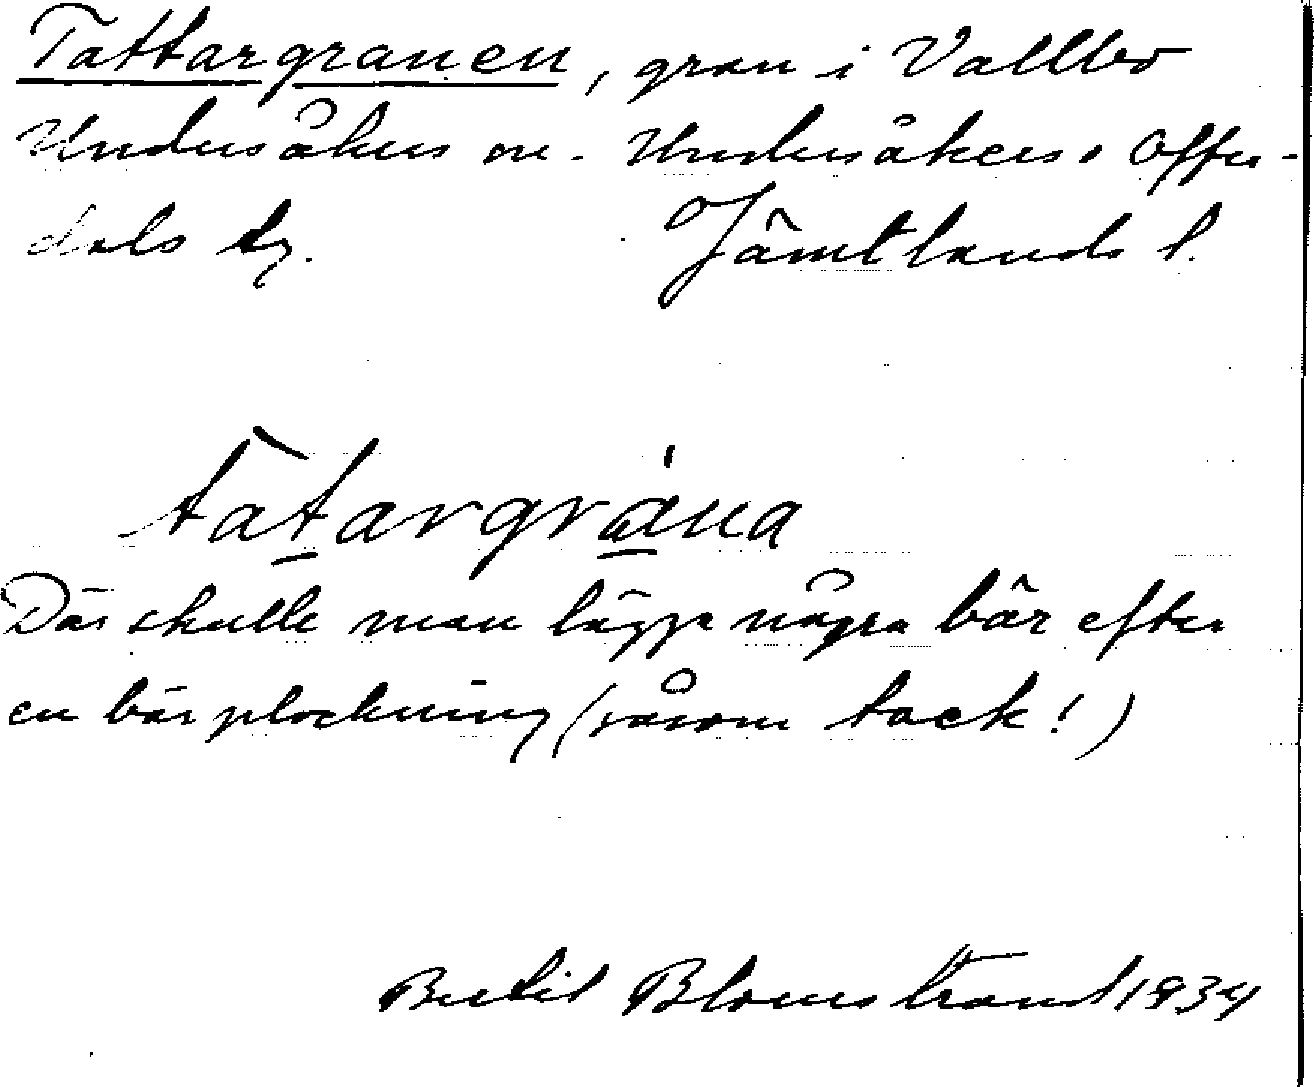 Tattargranen, gran i Vallbo
Undersåkers sn. Undersåkers o Offer-
dals tg. Jämtlands l.
tatargrána
Där skulle man lägga några bär efter
en bärplockning (såsom tack!)
Bertil Blomstrand 1934